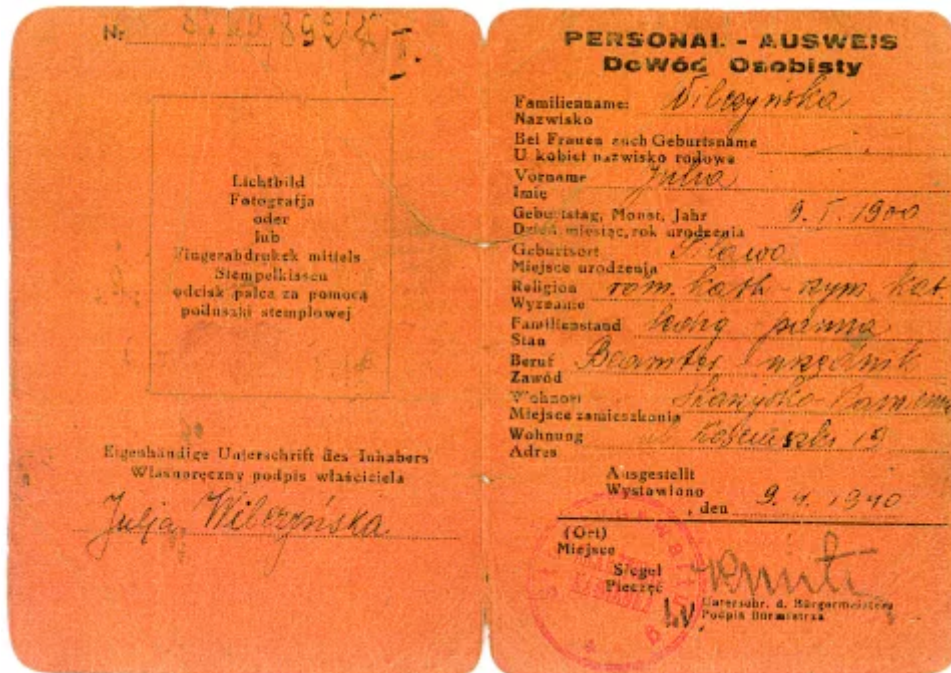 Nr
Lichtbild
Fotografja
oder
lub
Fingerabdrukek mittels
Stempelkissen
odcisk palca za pomocą
poduszki stemplowej
Eigenhändige Unterschrift des Inhabers
Własnoręczny podpis właściciela
Julja Wilczyńska
PERSONAL - AUSWEIS
DoWód Osobisty
Familienname: Wilczyńska
Nazwisko
Bei Frauen auch Geburtsname
U kobiet nazwisko rodowe
Vorname Julia
Imię
Geburtstag, Monat, Jahr 9. I. 1900
Dzień, miesiąc, rok urodzenia
Geburtsort
Miejsce urodzenia
Religion röm. kath - rzym. kat
Wyznanie
Familienstand ledig - panna
Stan
Beruf Beamter urzędnik
Zawód
Wohnort
Miejsce zamieszkania
Wohnung ul. Kościuszki
Adres
Ausgestellt
Wystawiono
, den 1940
(Ort)
Miejsce
Siegel
Pieczęć
Unterschr. d. Bürgermeisters
Podpis Burmistrza